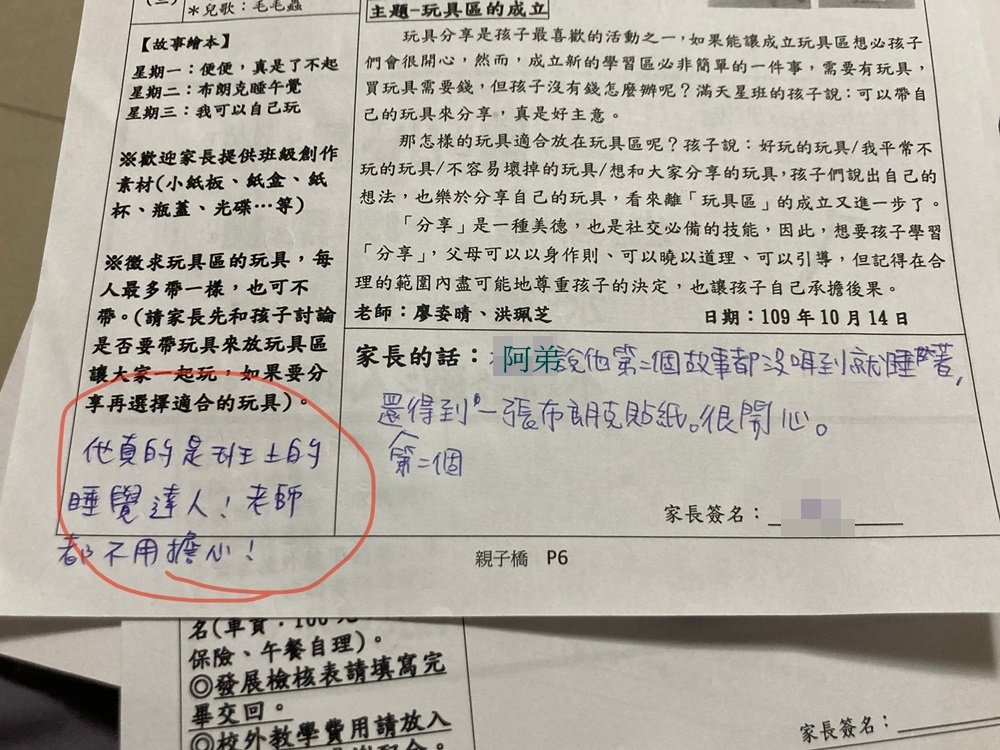 ＊兒歌：毛毛蟲
【故事繪本】
星期一：便便，真是了不起
星期二：布朗克睡午覺
星期三：我可以自己玩
※歡迎家長提供班級創作
素材(小紙板、紙盒、紙
杯、瓶蓋、光碟…等)
※徵求玩具區的玩具，每
人最多帶一樣，也可不
帶。(請家長先和孩子討論
是否要帶玩具來放玩具區
讓大家一起玩，如果要分
享再選擇適合的玩具)。
他真的是班上的
睡覺達人！老師
都不用擔心！
主題-玩具區的成立
玩具分享是孩子最喜歡的活動之一，如果能讓成立玩具區想必孩子
們會很開心，然而，成立新的學習區必非簡單的一件事，需要有玩具，
買玩具需要錢，但孩子沒有錢怎麼辦呢？滿天星班的孩子說：可以帶自
己的玩具來分享，真是好主意。
那怎樣的玩具適合放在玩具區呢？孩子說：好玩的玩具/我平常不
玩的玩具/不容易壞掉的玩具/想和大家分享的玩具，孩子們說出自己的
想法，也樂於分享自己的玩具，看來離「玩具區」的成立又進一步了。
「分享」是一種美德，也是社交必備的技能，因此，想要孩子學習
「分享」，父母可以以身作則、可以曉以道理、可以引導，但記得在合
理的範圍內盡可能地尊重孩子的決定，也讓孩子自己承擔後果。
老師：廖姿晴、洪珮芝 日期：109年10月14日
家長的話：阿弟說他第二個故事都沒聽到就睡著，
還得到一張布朗克貼紙。很開心。
第二個
家長簽名：
親子橋 P6
保險、午餐自理)。
◎發展檢核表請填寫完
畢交回。
◎校外教學費用請放入
家長簽名：